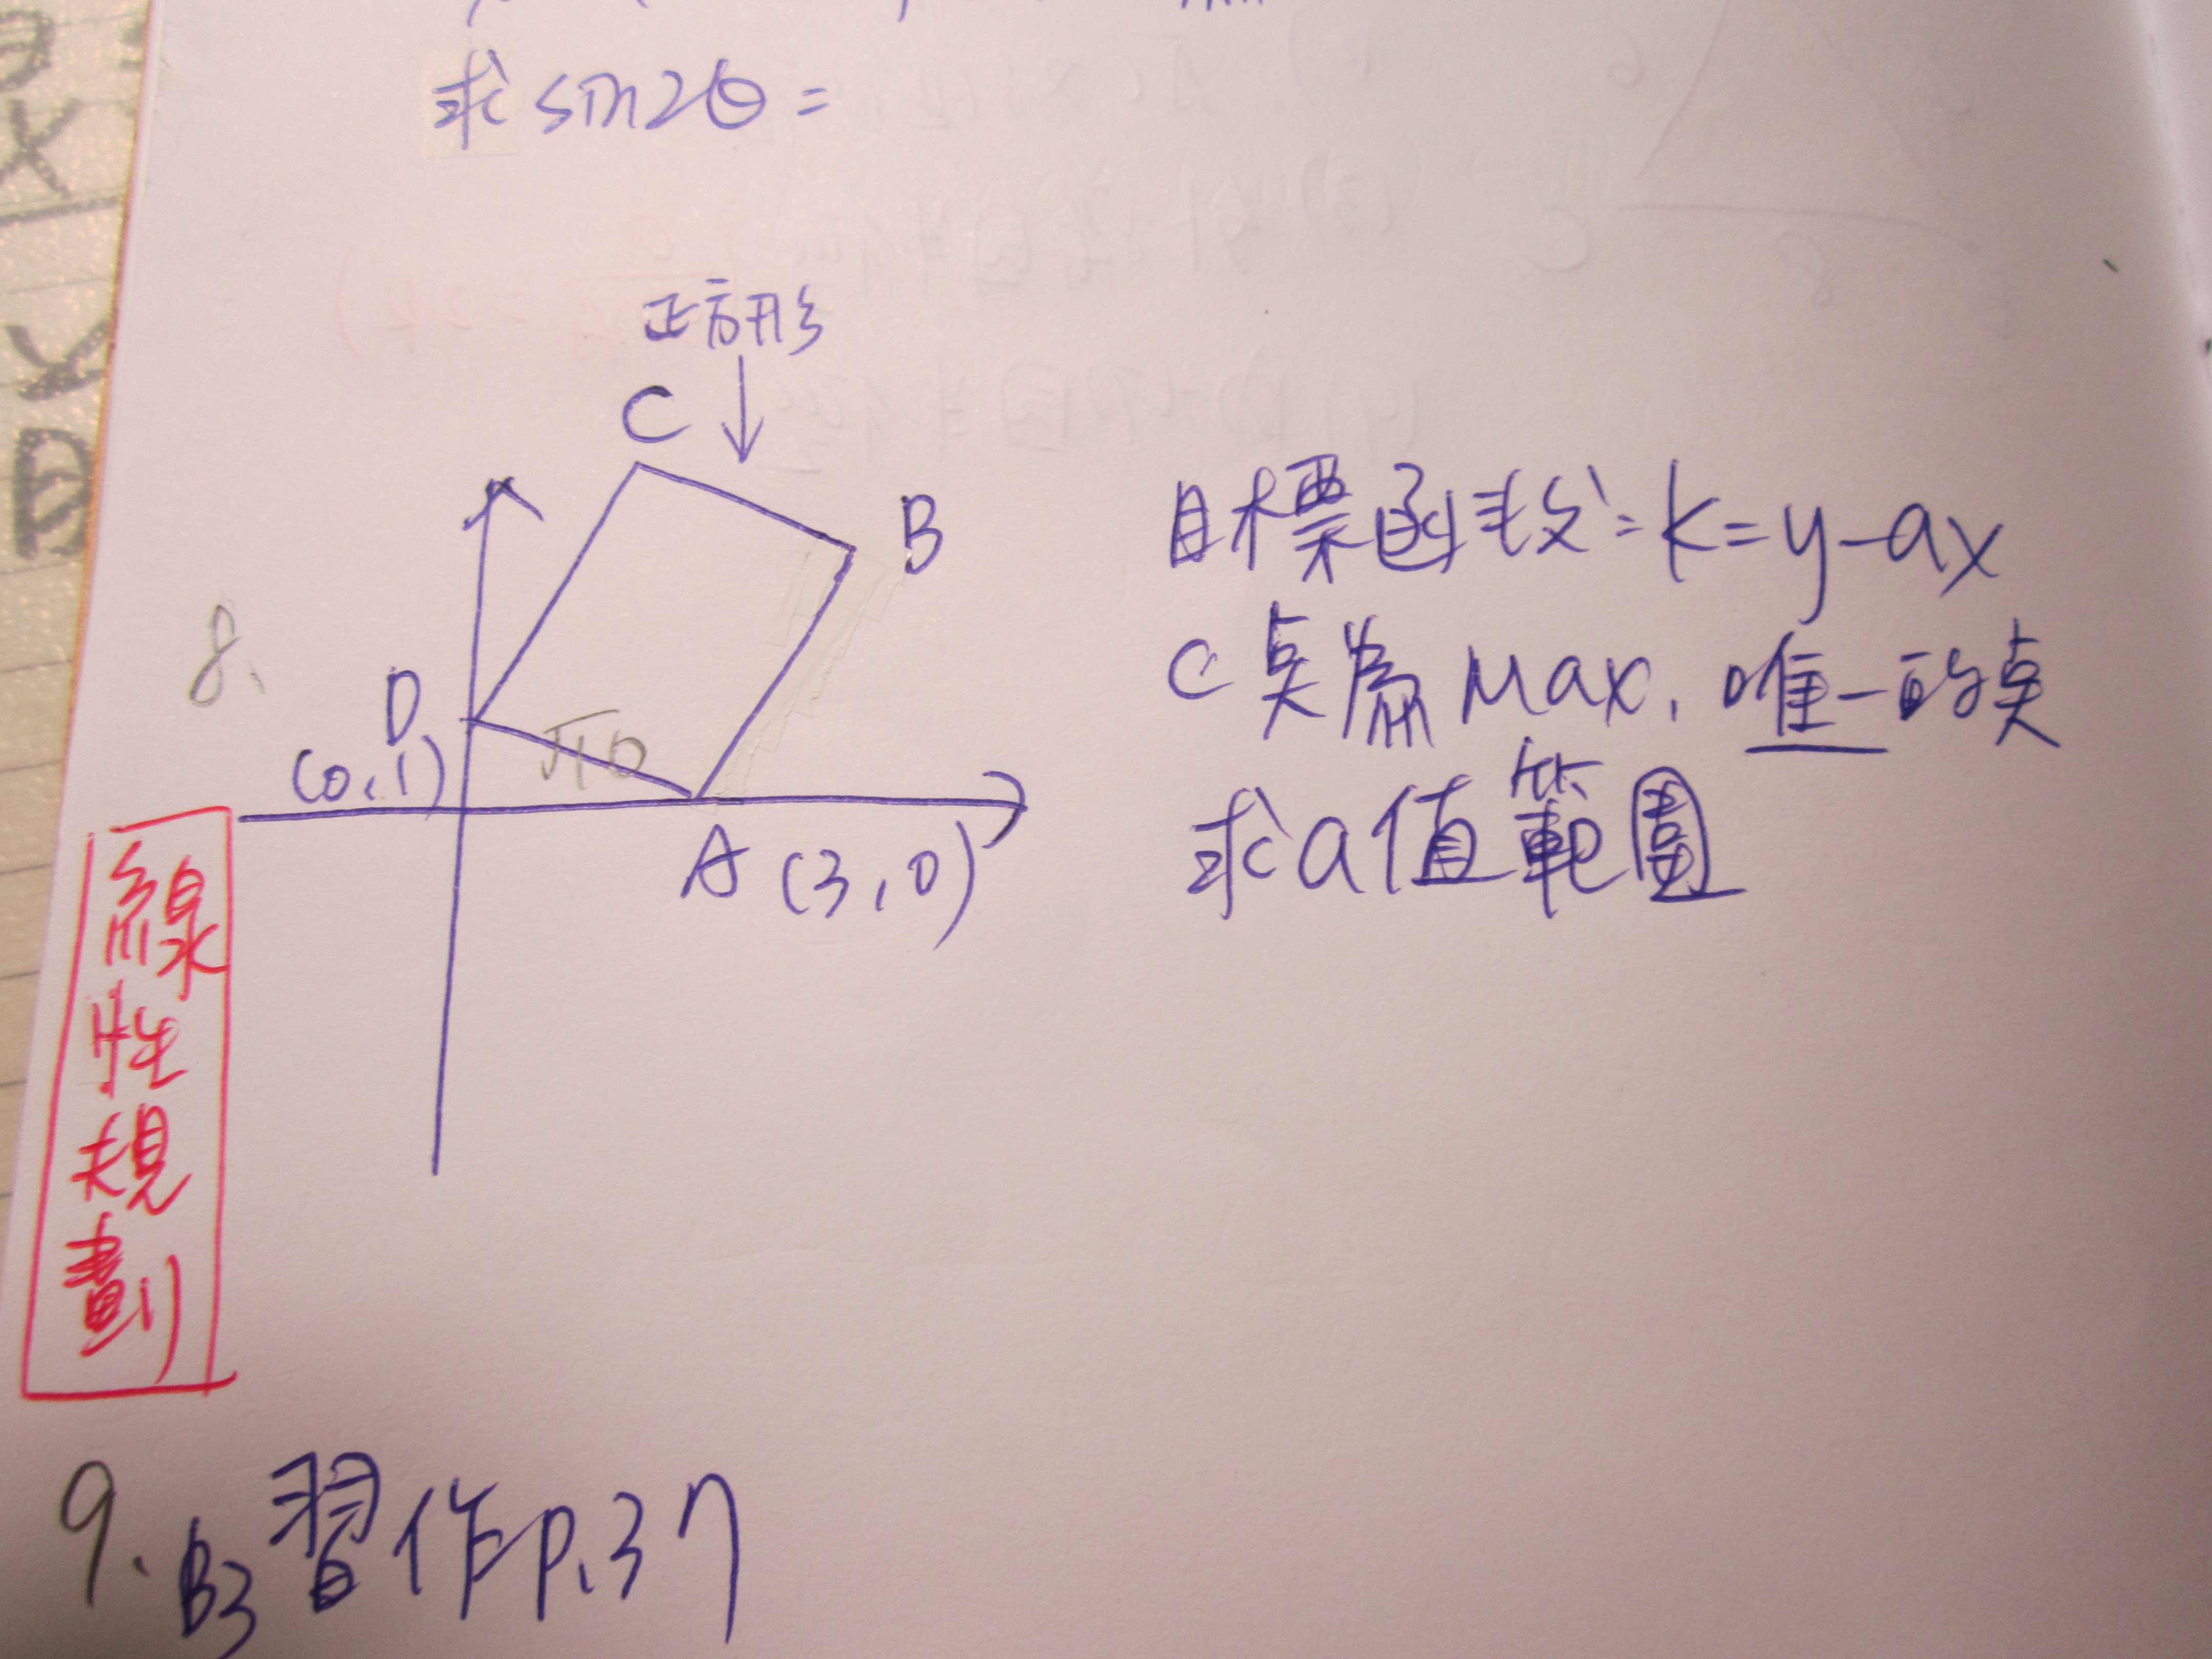 求 sin2θ =
正方形
C
B
8.
D
(0,1)
√10
A (3,0)
目標函數：k=y-ax
C 点為 Max, 唯一的点
求a值範圍
線性規劃
9. B3習作P.37